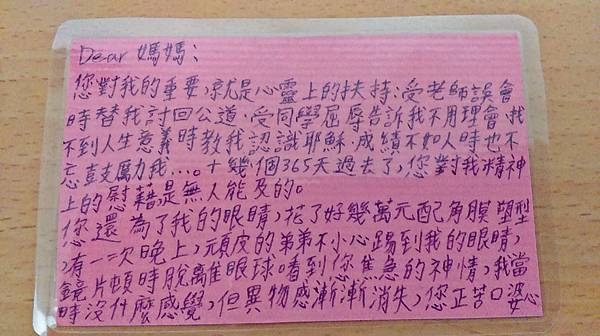 Dear 媽媽：
您對我的重要，就是心靈上的扶持：受老師誤會
時替我討回公道、受同學屈辱告訴我不用理會、找
不到人生意義時教我認識耶穌、成績不如人時也不
忘鼓勵我…。十幾個365天過去了，您對我精神
上的慰藉是無人能及的。
您還為了我的眼睛，花了好幾萬元配角膜塑型
，有一次晚上，頑皮的弟弟不小心踢到我的眼睛，
鏡片頓時脫離眼球。看到你焦急的神情，我當
時沒什麼感覺，但異物感漸漸消失，您正苦口婆心